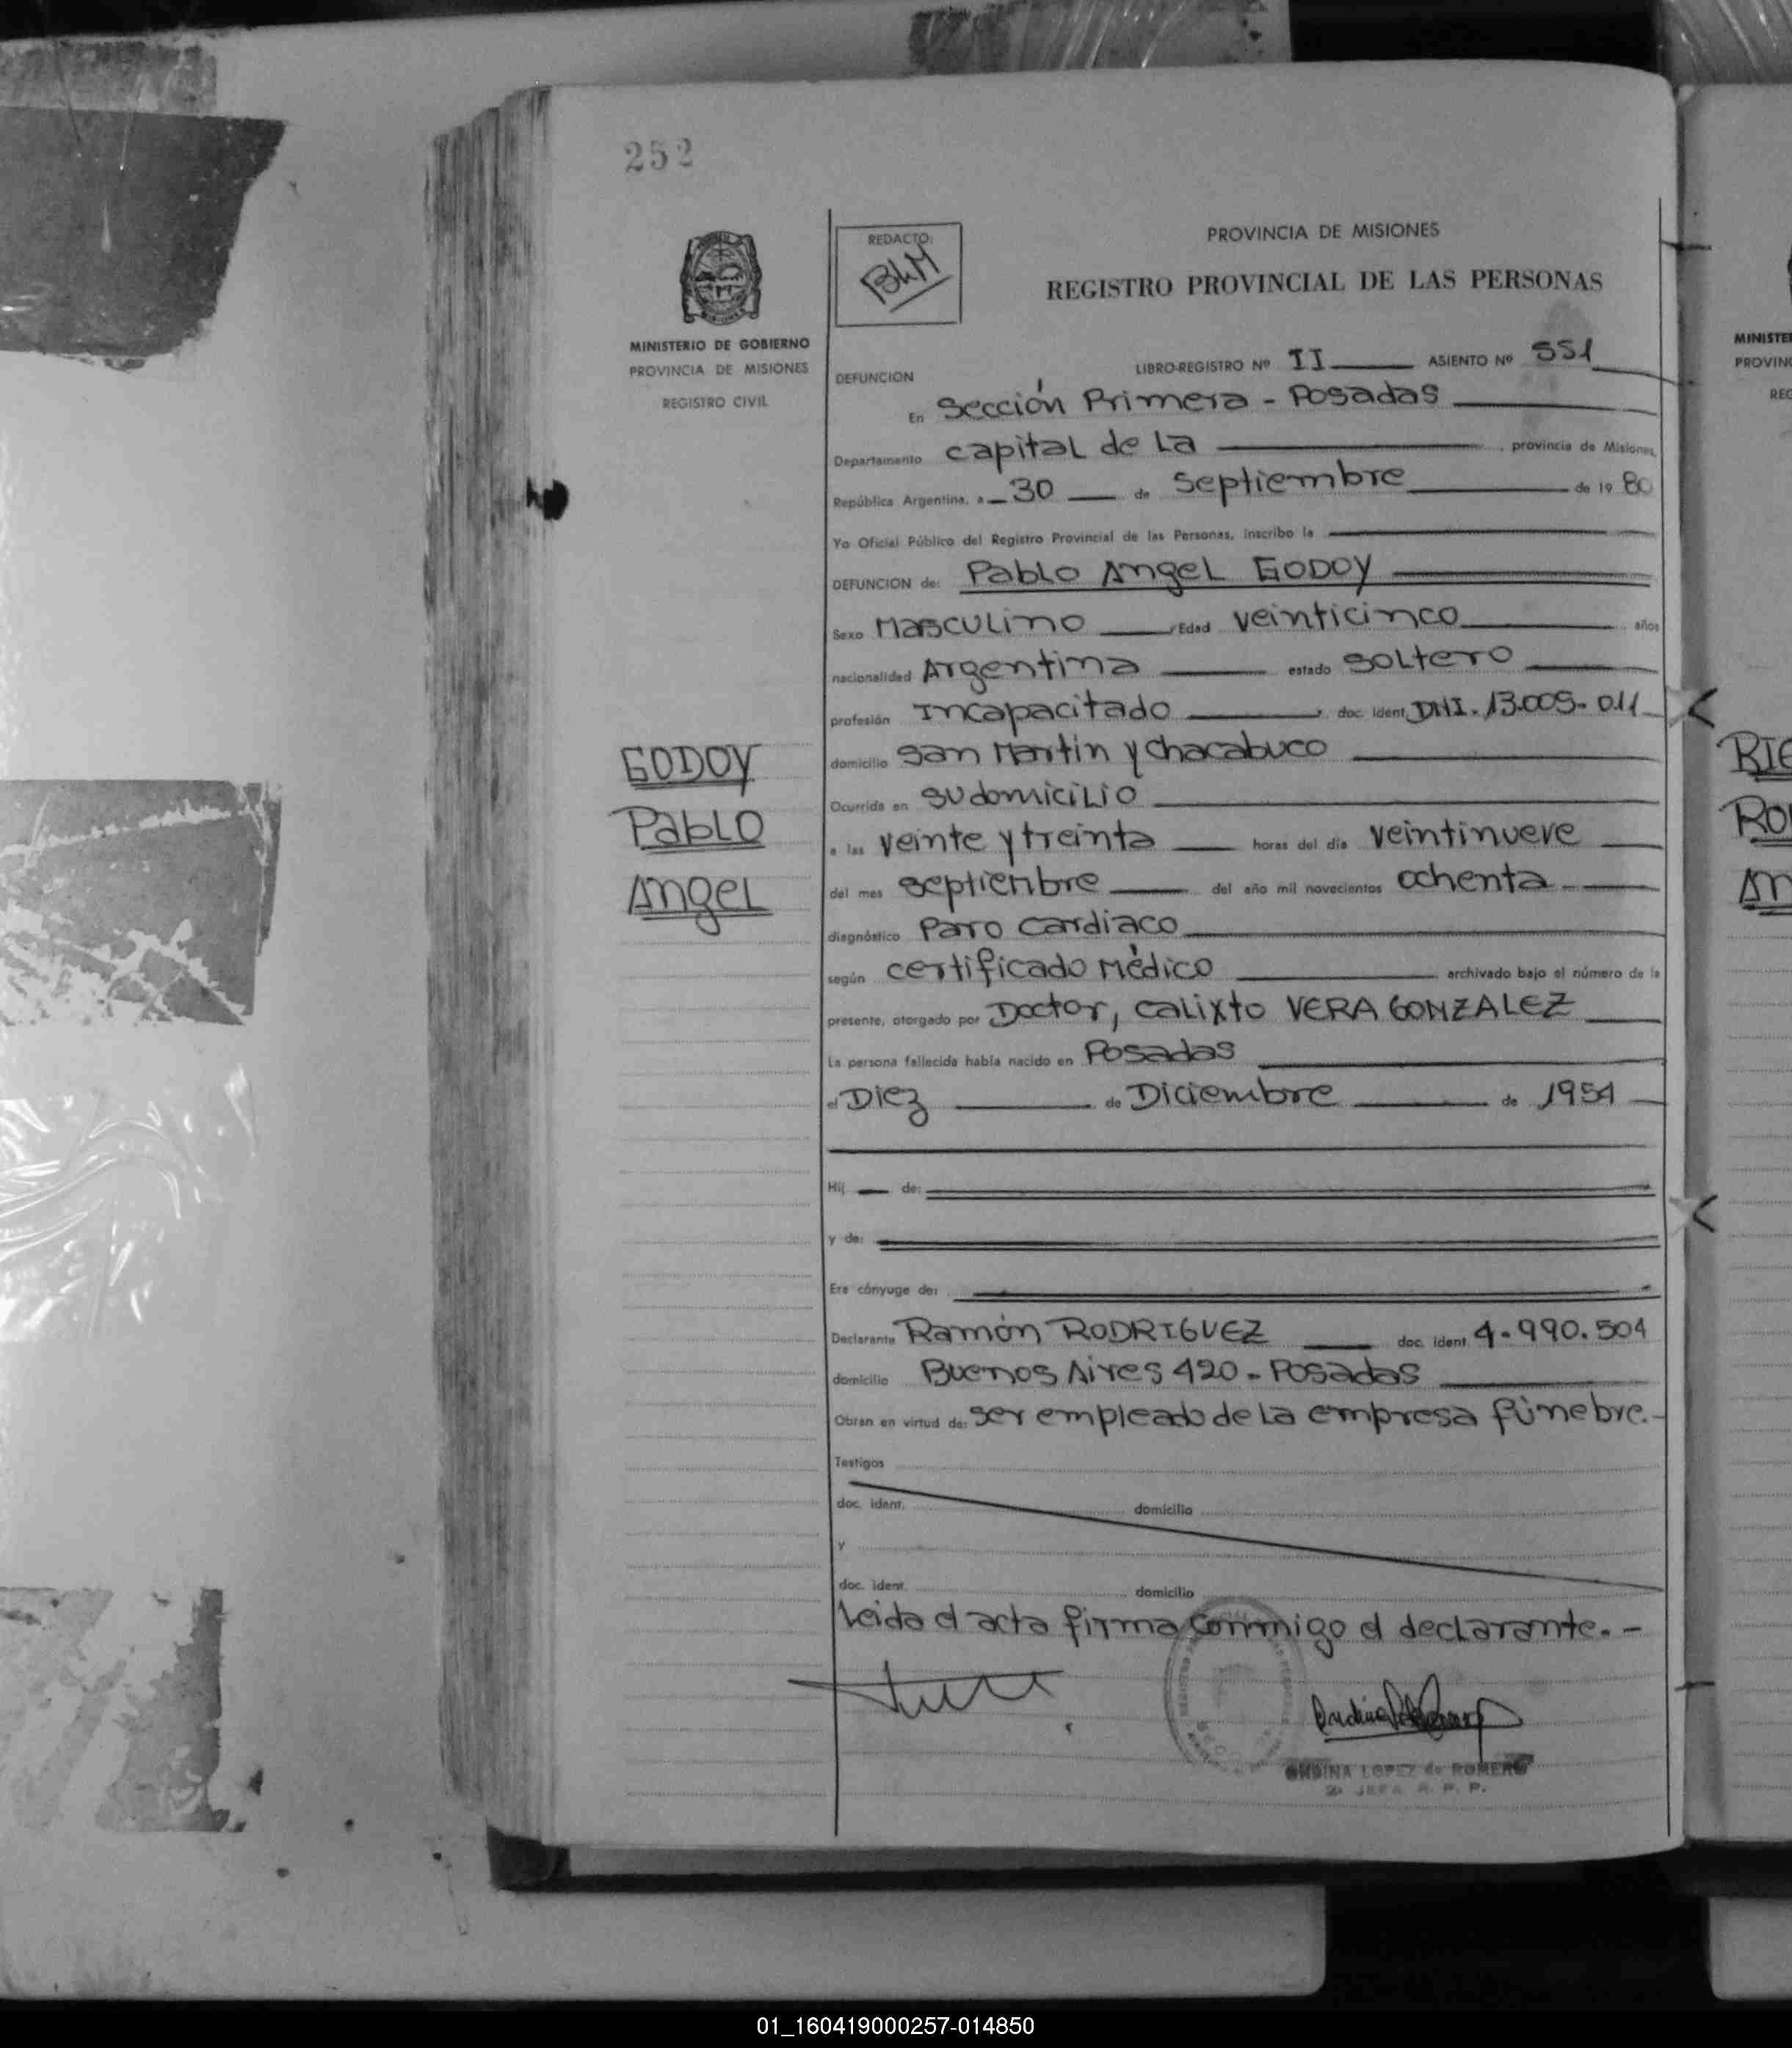 252
MINISTERIO DE GOBIERNO
PROVINCIA DE MISIONES
REGISTRO CIVIL
GODOY
Pablo
Angel
REDACTO:
BLM
PROVINCIA DE MISIONES
REGISTRO PROVINCIAL DE LAS PERSONAS
DEFUNCION LIBRO-REGISTRO Nº II ASIENTO Nº 551
En Sección Primera - Posadas
Departamento capital de La , provincia de Misiones,
República Argentina, a 30 de Septiembre de 19 80
Yo Oficial Público del Registro Provincial de las Personas, inscribo la
DEFUNCION de: Pablo Angel GODOY
Sexo Masculino Edad veinticinco años
nacionalidad Argentina estado soltero
profesión Incapacitado , doc. ident. DNI. 13.005-011
domicilio San Martin y chacabuco
Ocurrida en su domicilio
a las veinte y treinta horas del día veintinueve
del mes septiembre del año mil novecientos ochenta
diagnóstico Paro cardiaco
según certificado Médico archivado bajo el número de la
presente, otorgado por Doctor, Calixto VERA GONZALEZ
La persona fallecida había nacido en Posadas
el Diez de Diciembre de 1954
Hij de:
y de:
Era cónyuge de:
Declarante Ramón RODRIGUEZ doc. ident. 4.990.504
domicilio Buenos Aires 420 - Posadas
Obran en virtud de: ser empleado de la empresa fúnebre.-
Testigos
doc. ident. domicilio
y
doc. ident. domicilio
Leida el acta firma conmigo el declarante. -
ONDINA LOPEZ de ROMERO
2º JEFA R. P. P.
MINISTE
PROVINC
REG
RIE
RO
An
01_160419000257-014850